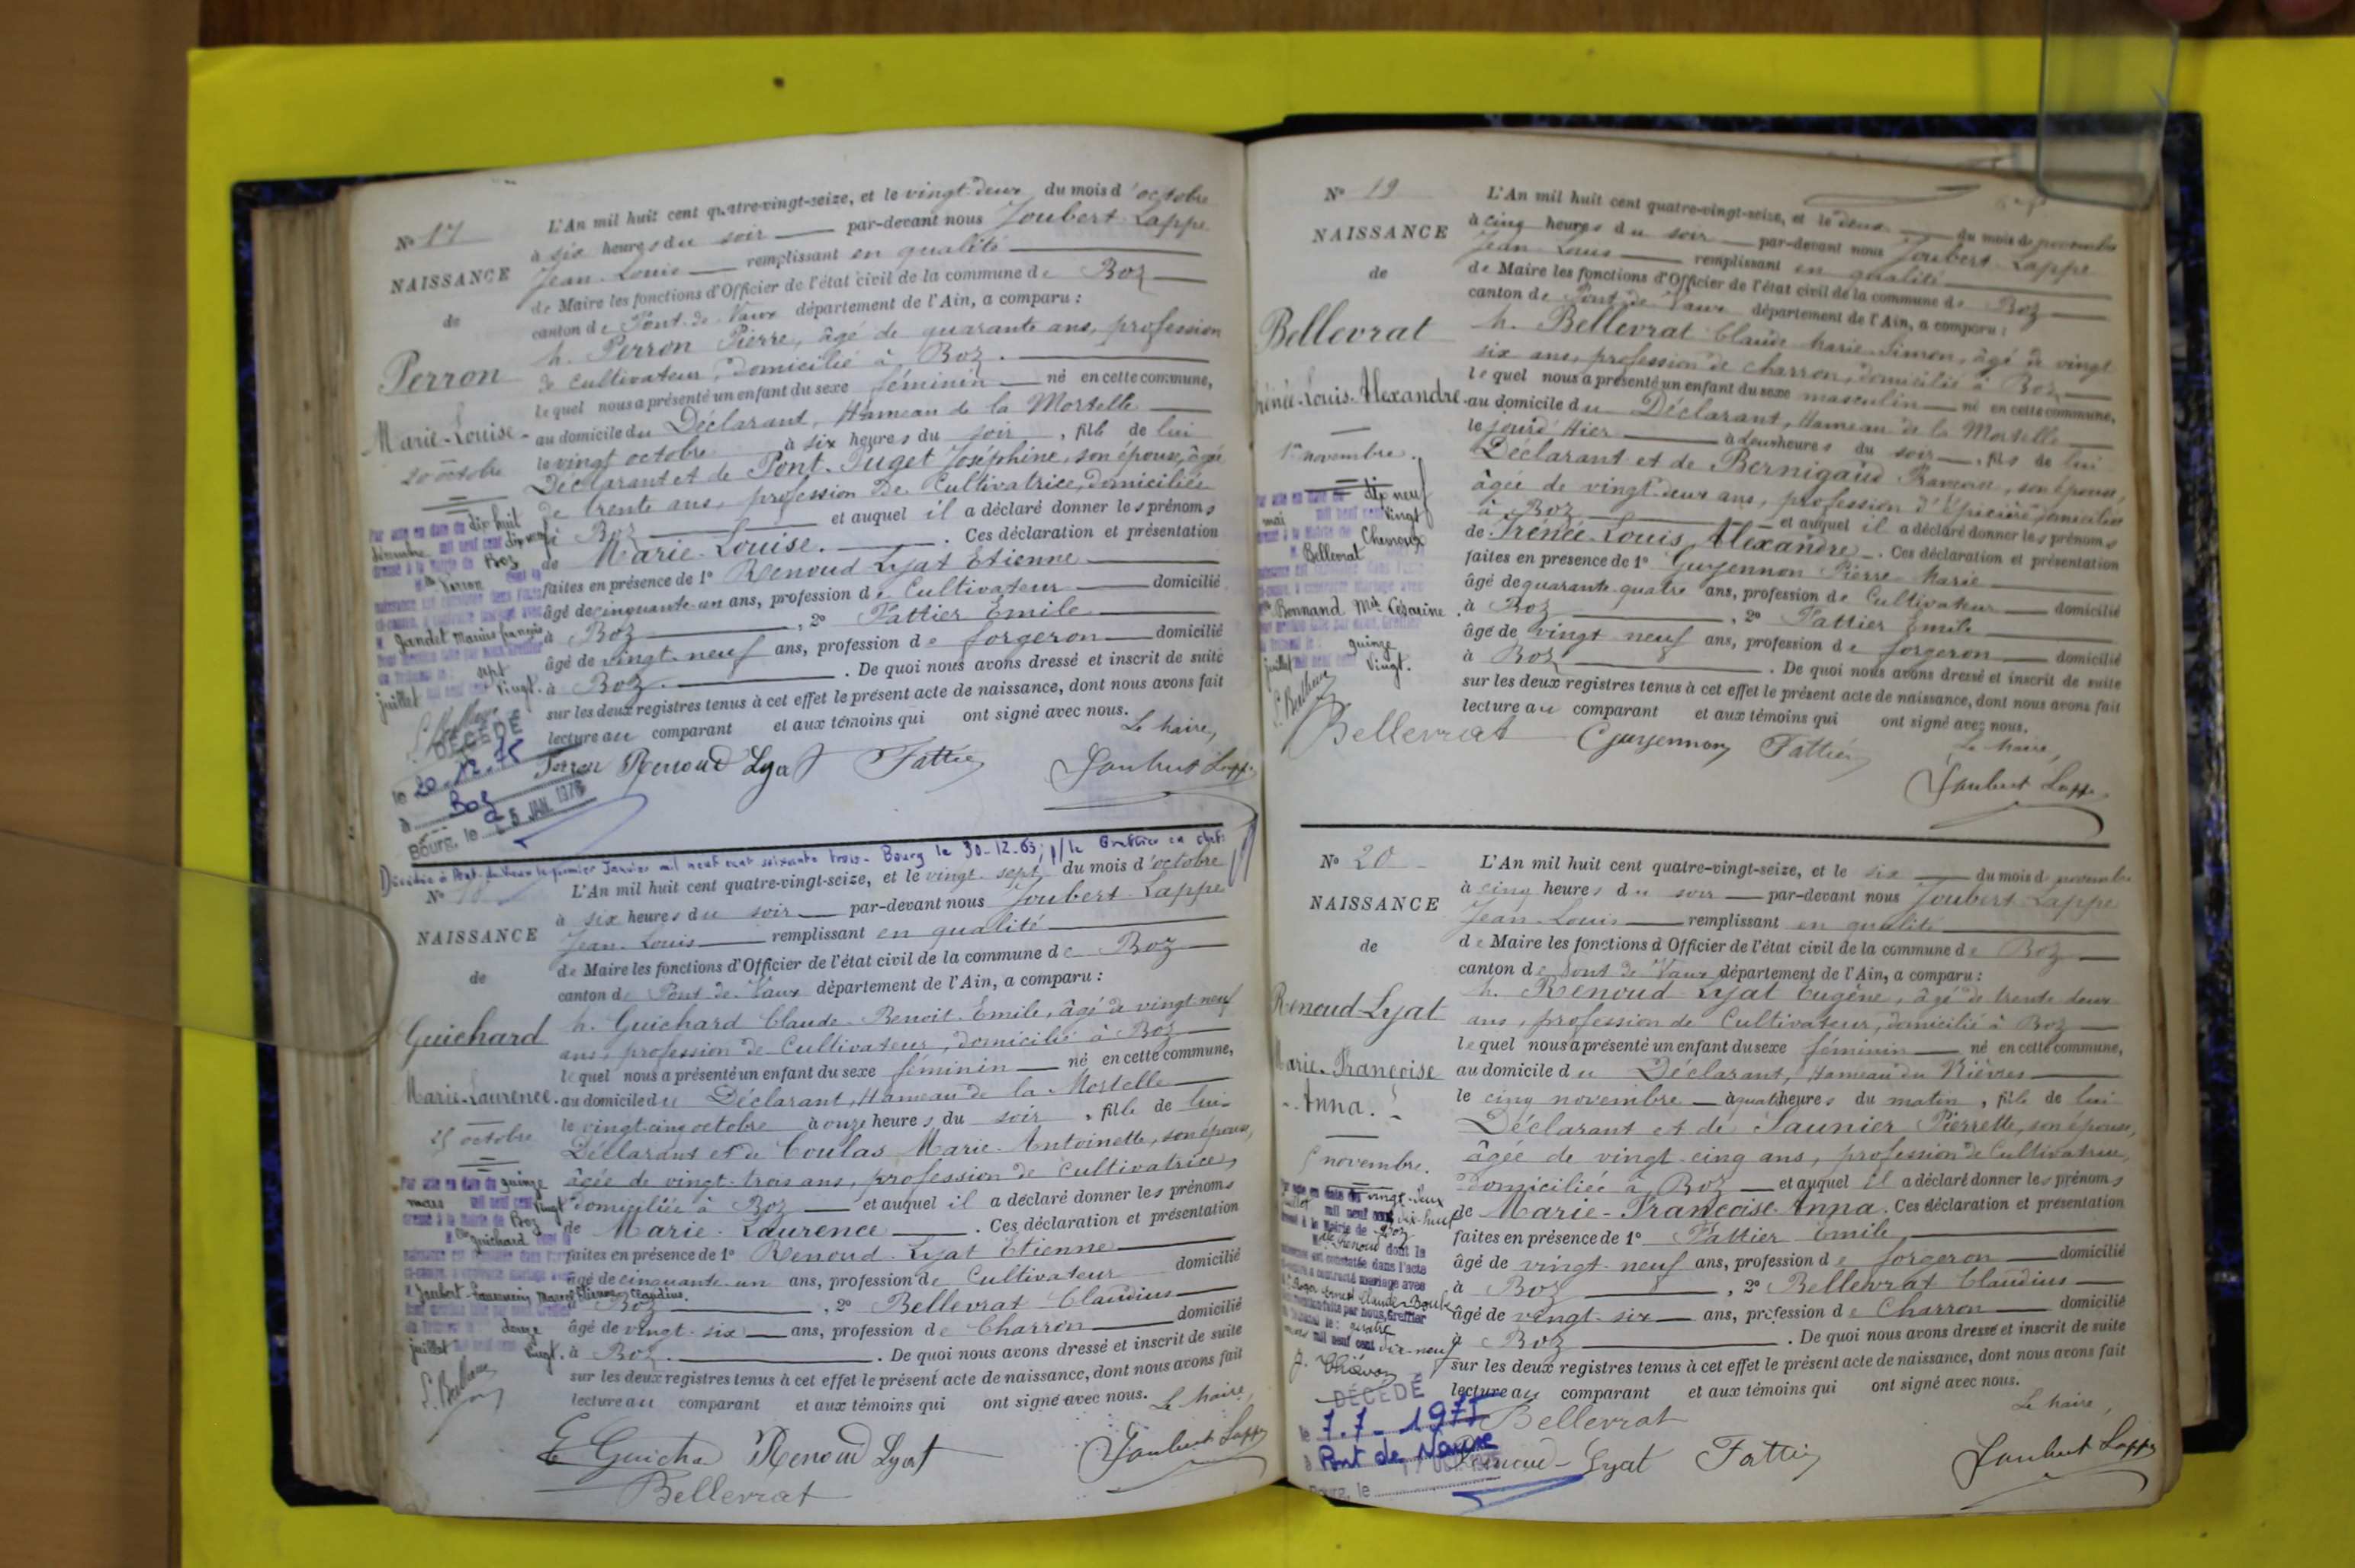 N° 17
NAISSANCE
de
Perron
Marie-Louise
20 octobre
L'An mil huit cent quatre-vingt-seize, et le vingt-deux du mois d'octobre
à six heures du soir par-devant nous Joubert-Lappe
Jean-Louis remplissant en qualité
de Maire les fonctions d'Officier de l'état civil de la commune de Boz
canton de Pont-de-Vaux département de l'Ain, a comparu :
M. Perron Pierre, âgé de quarante ans, profession
de Cultivateur, domicilié à Boz.
lequel nous a présenté un enfant du sexe féminin né en cette commune,
au domicile du Déclarant, Hameau de la Mortelle
le vingt octobre à six heures du soir, fille de lui
Déclarant et de Pont-Puget Joséphine, son épouse, âgée
de trente ans, profession de Cultivatrice, domiciliée
à Boz et auquel il a déclaré donner les prénoms
de Marie-Louise. Ces déclaration et présentation
faites en présence de 1° Renoud Lyat Etienne
âgé de cinquante-un ans, profession de Cultivateur domicilié
à Boz, 2° Fattier Emile
âgé de vingt-neuf ans, profession de forgeron domicilié
à Boz. De quoi nous avons dressé et inscrit de suite
sur les deux registres tenus à cet effet le présent acte de naissance, dont nous avons fait
lecture au comparant et aux témoins qui ont signé avec nous.
Le Maire,
Perron Renoud Lyat Fattier Joubert Lappe
dix-huit
décembre mil neuf cent dix neuf
Boz
Perron
Gandet Marius François
sept
juillet vingt.
DÉCÉDÉ
le 20.12.75
à Boz
Bourg, le 5 JAN. 1976
Décédée à Pont-de-Vaux le premier Janvier mil neuf cent soixante trois - Bourg le 30-12-63; p/ le Greffier en chef:
N° 18
NAISSANCE
de
Guichard
Marie-Laurence.
25 octobre
L'An mil huit cent quatre-vingt-seize, et le vingt-sept du mois d'octobre
à six heures du soir par-devant nous Joubert-Lappe
Jean-Louis remplissant en qualité
de Maire les fonctions d'Officier de l'état civil de la commune de Boz
canton de Pont-de-Vaux département de l'Ain, a comparu :
M. Guichard Claude-Benoit-Emile, âgé de vingt-neuf
ans, profession de Cultivateur, domicilié à Boz
lequel nous a présenté un enfant du sexe féminin né en cette commune,
au domicile du Déclarant, Hameau de la Mortelle
le vingt-cinq octobre à onze heures du soir, fille de lui
Déclarant et de Coulas Marie-Antoinette, son épouse,
âgée de vingt-trois ans, profession de Cultivatrice,
domiciliée à Boz et auquel il a déclaré donner les prénoms
de Marie-Laurence. Ces déclaration et présentation
faites en présence de 1° Renoud-Lyat Etienne
âgé de cinquante-un ans, profession de Cultivateur domicilié
à Boz, 2° Bellevrat Claudius
âgé de vingt-six ans, profession de Charron domicilié
à Boz. De quoi nous avons dressé et inscrit de suite
sur les deux registres tenus à cet effet le présent acte de naissance, dont nous avons fait
lecture au comparant et aux témoins qui ont signé avec nous.
Le Maire,
E Guicha Renoud Lyat Joubert Lappe
Bellevrat
Par acte en date du quinze
mars mil neuf cent vingt
Boz
Guichard
douze
juillet vingt.
N° 19
NAISSANCE
de
Bellevrat
Irénée-Louis-Alexandre
1er novembre.
L'An mil huit cent quatre-vingt-seize, et le deux du mois de novembre
à cinq heures du soir par-devant nous Joubert-Lappe
Jean-Louis remplissant en qualité
de Maire les fonctions d'Officier de l'état civil de la commune de Boz
canton de Pont-de-Vaux département de l'Ain, a comparu :
M. Bellevrat Claude-Marie-Simon, âgé de vingt
six ans, profession de charron, domicilié à Boz
lequel nous a présenté un enfant du sexe masculin né en cette commune,
au domicile du Déclarant, Hameau de la Mortelle
le jour d'Hier à deux heures du soir, fils de lui
Déclarant et de Bernigaud Francine, son épouse,
âgée de vingt-deux ans, profession d'épicière domiciliée
à Boz et auquel il a déclaré donner les prénoms
de Irénée-Louis-Alexandre. Ces déclaration et présentation
faites en présence de 1° Guyennon Pierre-Marie
âgé de quarante-quatre ans, profession de Cultivateur domicilié
à Boz, 2° Fattier Emile
âgé de vingt neuf ans, profession de forgeron domicilié
à Boz. De quoi nous avons dressé et inscrit de suite
sur les deux registres tenus à cet effet le présent acte de naissance, dont nous avons fait
lecture au comparant et aux témoins qui ont signé avec nous.
Le Maire,
Bellevrat Guyennon Fattier
Joubert Lappe
dix neuf
mai mil neuf cent vingt
Chevroux
Bellevrat
Bonnand Mie Césarine
quinze
juillet vingt.
N° 20
NAISSANCE
de
Renoud-Lyat
Marie-Françoise
Anna.
5 novembre.
L'An mil huit cent quatre-vingt-seize, et le six du mois de novembre
à cinq heures du soir par-devant nous Joubert-Lappe
Jean-Louis remplissant en qualité
de Maire les fonctions d'Officier de l'état civil de la commune de Boz
canton de Pont-de-Vaux département de l'Ain, a comparu :
M. Renoud-Lyat Eugène, âgé de trente deux
ans, profession de Cultivateur, domicilié à Boz
lequel nous a présenté un enfant du sexe féminin né en cette commune,
au domicile du Déclarant, Hameau du Bièvres
le cinq novembre à quatre heures du matin, fille de lui
Déclarant et de Saunier Pierrette, son épouse,
âgée de vingt-cinq ans, profession de Cultivatrice,
domiciliée à Boz et auquel il a déclaré donner les prénoms
de Marie-Françoise-Anna. Ces déclaration et présentation
faites en présence de 1° Fattier Emile
âgé de vingt-neuf ans, profession de forgeron domicilié
à Boz, 2° Bellevrat Claudius
âgé de vingt-six ans, profession de Charron domicilié
à Boz. De quoi nous avons dressé et inscrit de suite
sur les deux registres tenus à cet effet le présent acte de naissance, dont nous avons fait
lecture au comparant et aux témoins qui ont signé avec nous.
Le Maire,
Bellevrat
Renoud-Lyat Fattier Joubert Lappe
vingt-deux
mil neuf cent dix-neuf
Boz
Renoud dont la
naissance est constatée dans l'acte
ci-contre a contracté mariage avec
mil neuf cent dix-neuf
DÉCÉDÉ
le 7.7-1975
à Pont de Vaux
Bourg, le